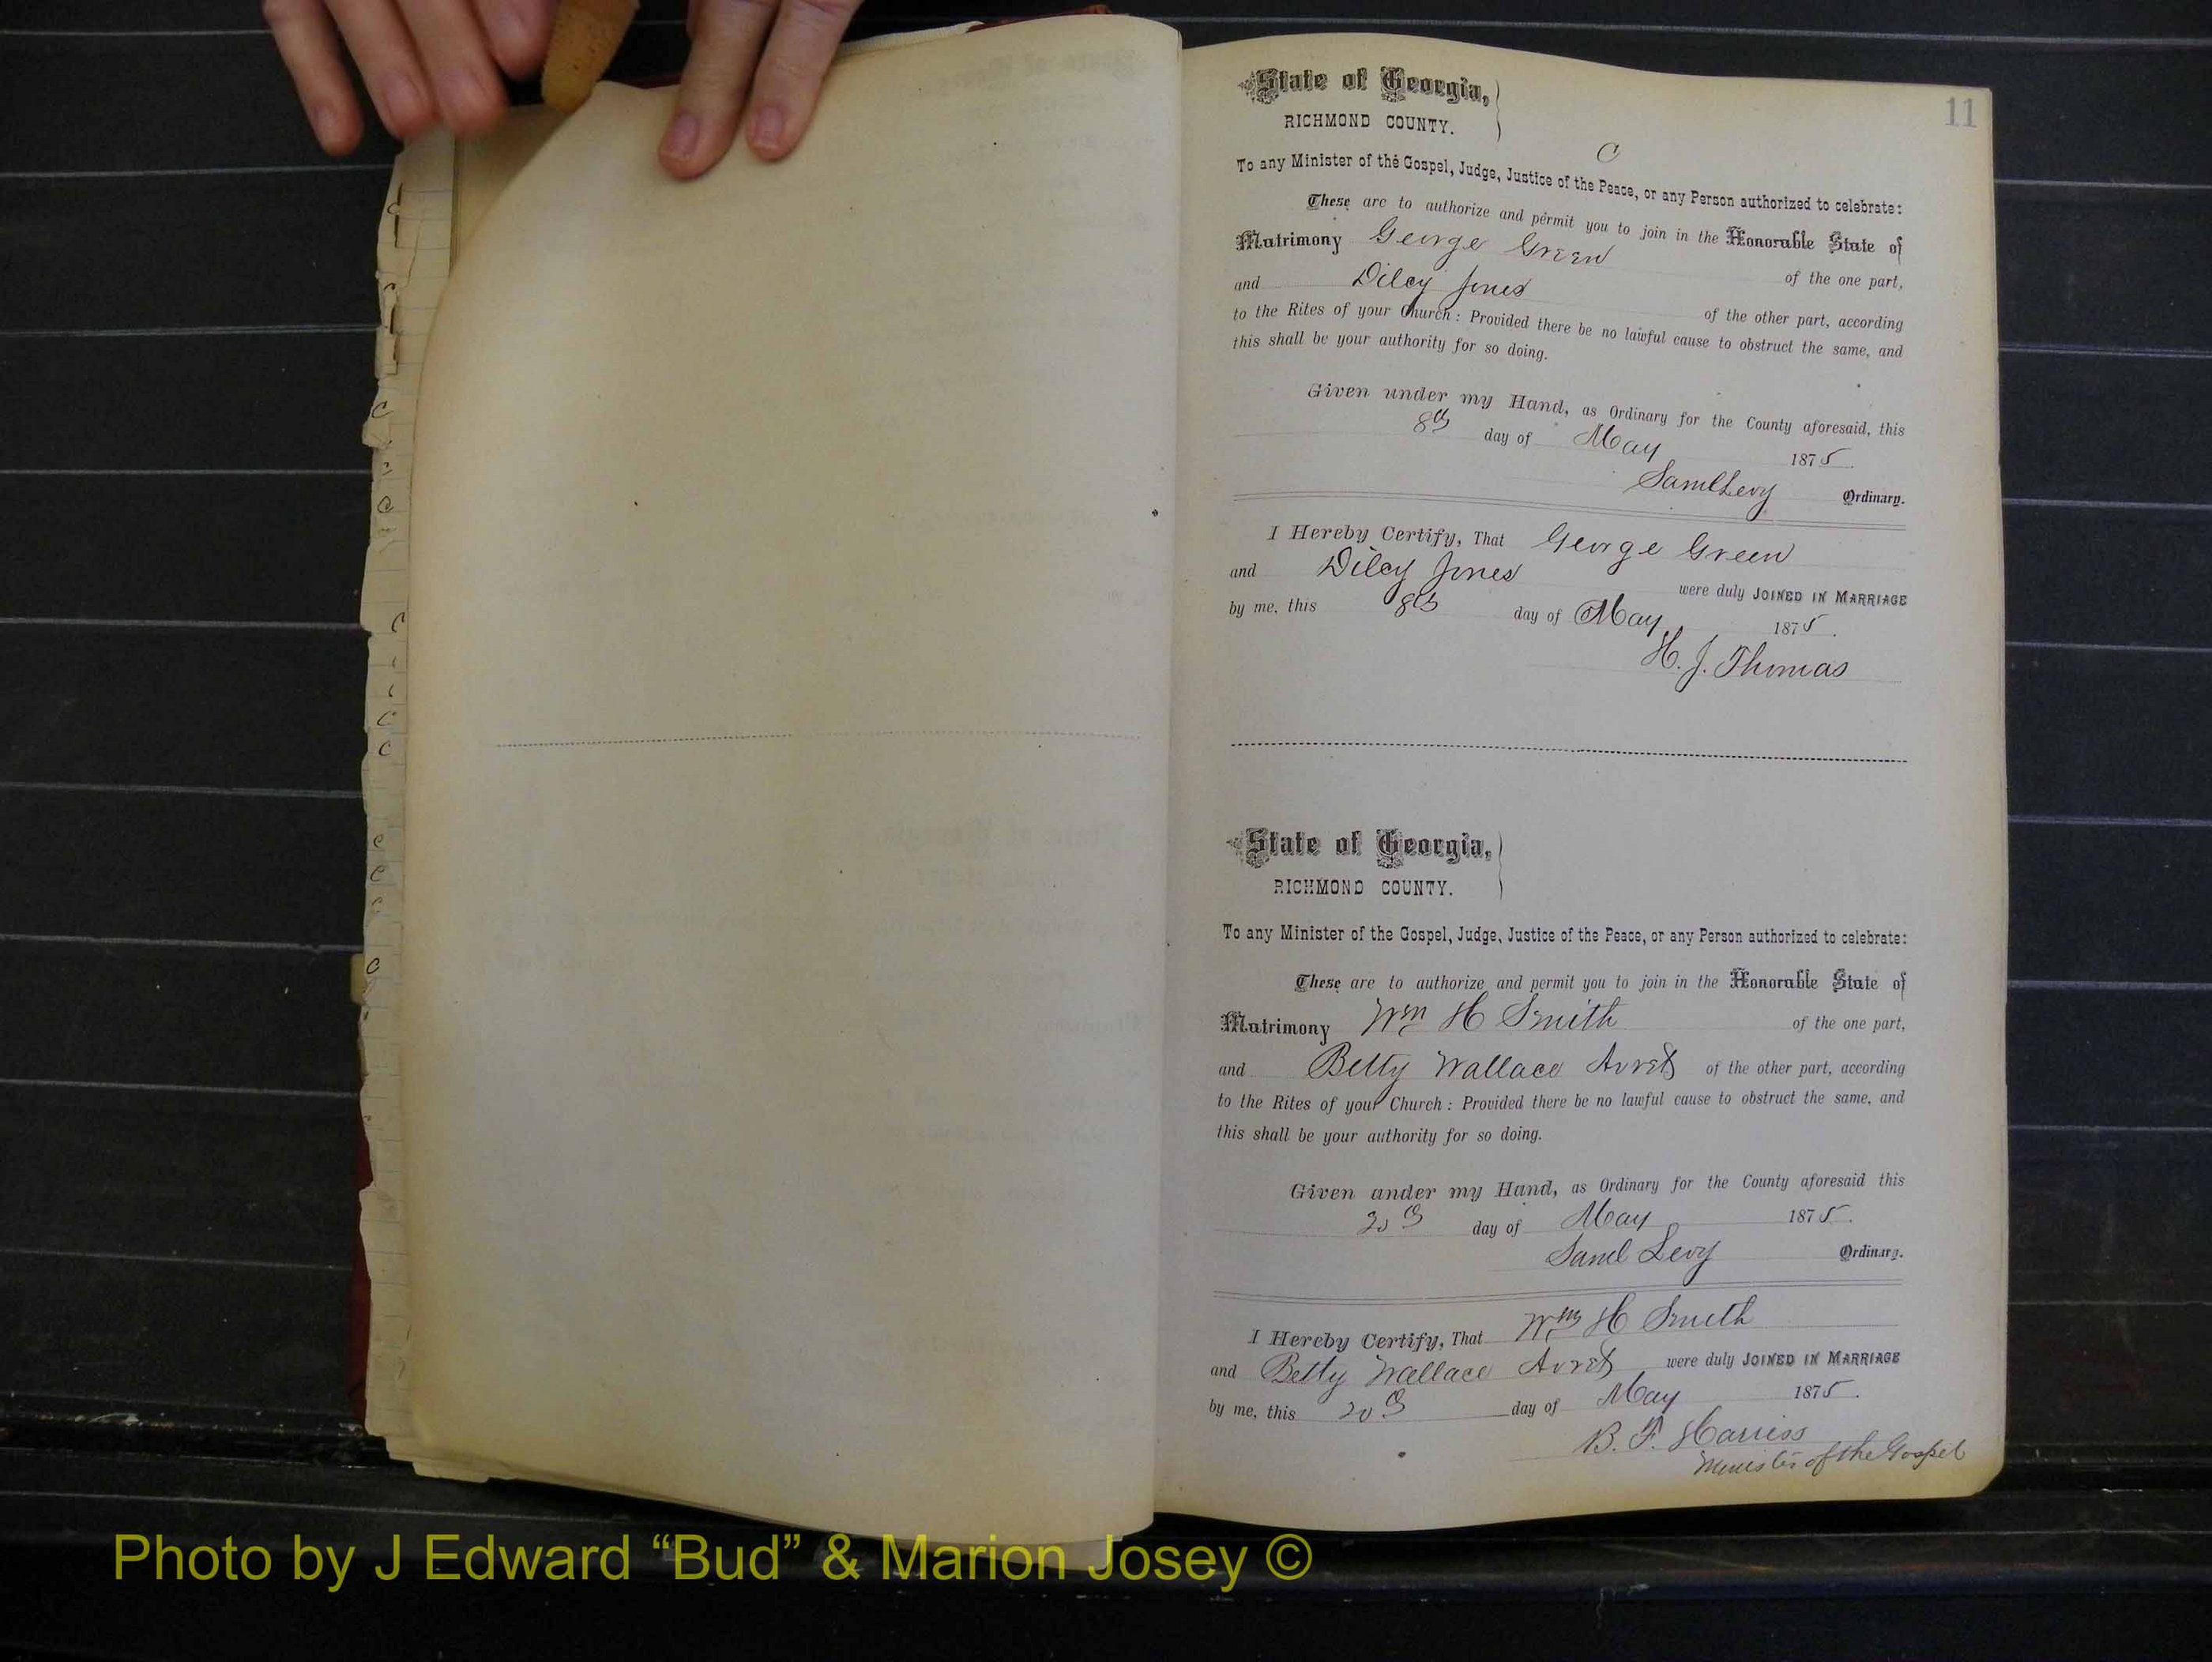 11
State of Georgia,
RICHMOND COUNTY.
C
To any Minister of the Gospel, Judge, Justice of the Peace, or any Person authorized to celebrate:
These are to authorize and permit you to join in the Honorable State of
Matrimony George Green of the one part,
and Dilcy Jones of the other part, according
to the Rites of your Church: Provided there be no lawful cause to obstruct the same, and
this shall be your authority for so doing.
Given under my Hand, as Ordinary for the County aforesaid, this
8th day of May 1875.
Saml Levy Ordinary.
I Hereby Certify, That George Green
and Dilcy Jones were duly JOINED IN MARRIAGE
by me, this 8th day of May 1875.
H. J. Thomas
State of Georgia,
RICHMOND COUNTY.
To any Minister of the Gospel, Judge, Justice of the Peace, or any Person authorized to celebrate:
These are to authorize and permit you to join in the Honorable State of
Matrimony Wm H Smith of the one part,
and Betty Wallace Avret of the other part, according
to the Rites of your Church: Provided there be no lawful cause to obstruct the same, and
this shall be your authority for so doing.
Given under my Hand, as Ordinary for the County aforesaid this
20th day of May 1875.
Saml Levy Ordinary.
I Hereby Certify, That Wm H Smith
and Betty Wallace Avret were duly JOINED IN MARRIAGE
by me, this 20th day of May 1875.
B. F. Harriss
Minister of the Gospel
Photo by J Edward “Bud” & Marion Josey ©